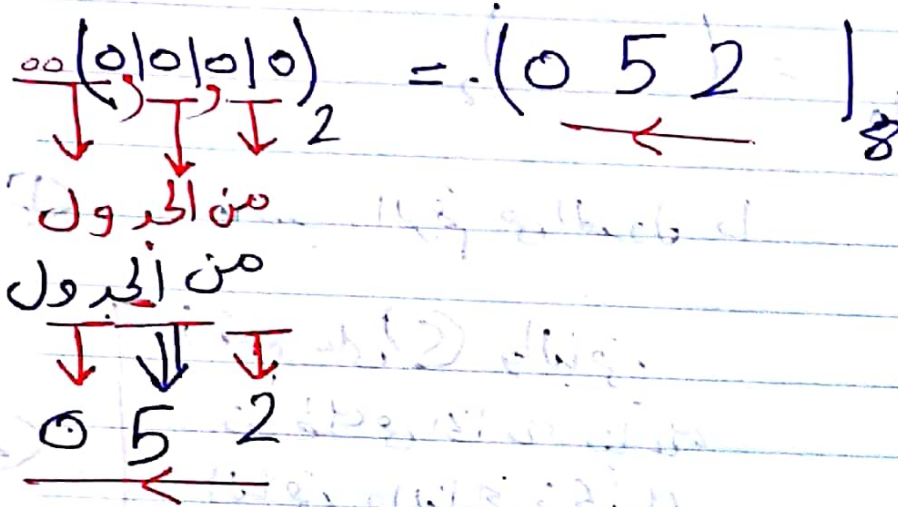 00(0101010)₂ = (052)₈
من الجدول
من الجدول
0 5 2